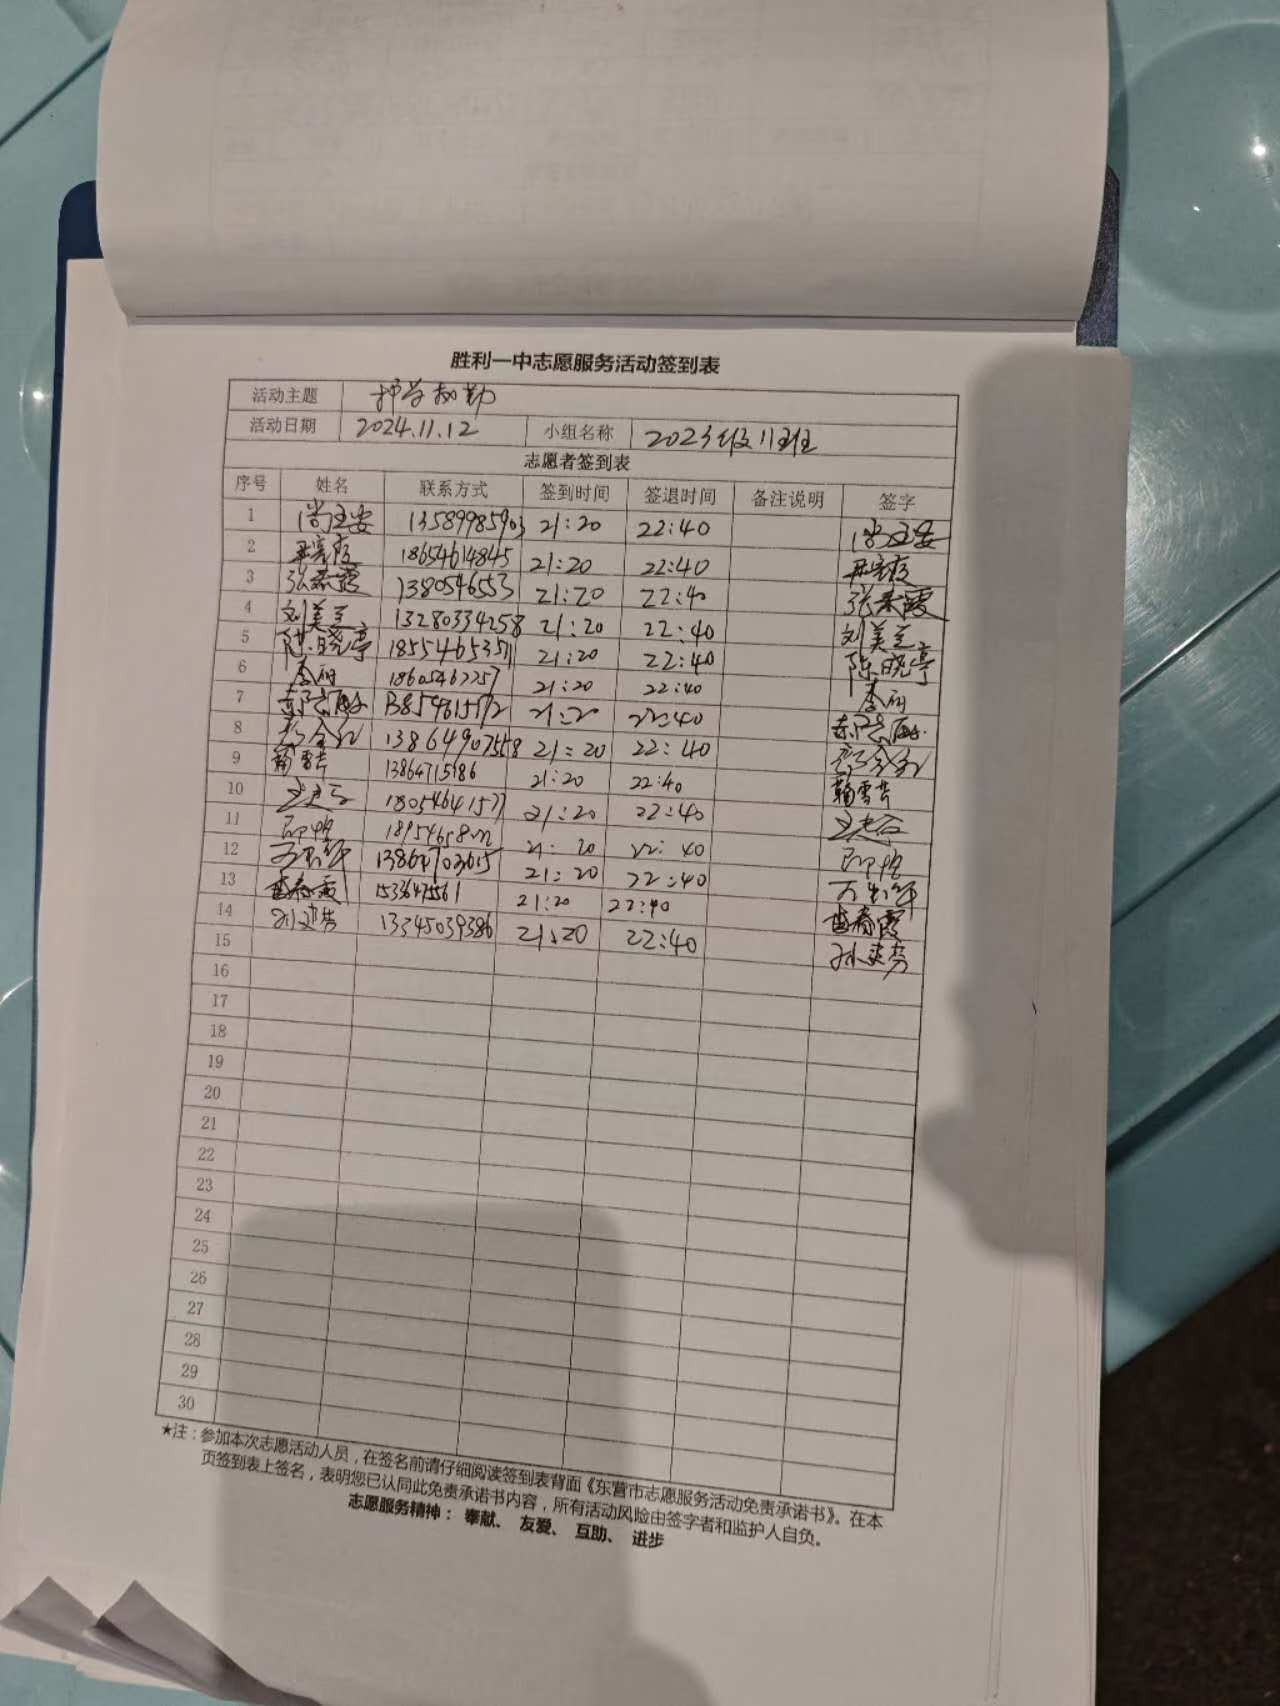 胜利一中志愿服务活动签到表
活动主题 护学执勤
活动日期 2024.11.12 小组名称 2023级11班
志愿者签到表
序号 姓名 联系方式 签到时间 签退时间 备注说明 签字
1 13589985903 21:20 22:40
2 18654614845 21:20 22:40
3 张春霞 1380546553 21:20 22:40 张春霞
4 刘美兰 13280334258 21:20 22:40 刘美兰
5 陈晓亭 18554653511 21:20 22:40 陈晓亭
6 李丽 18605462257 21:20 22:40 李丽
7 21:20 22:40
8 13864907558 21:20 22:40
9 韩雪芳 13864715186 21:20 22:40 韩雪芳
10 18054641577 21:20 22:40
11 21:20 22:40
12 13864703615 21:20 22:40
13 苗春霞 21:20 22:40 苗春霞
14 13345039386 21:20 22:40
15
16
17
18
19
20
21
22
23
24
25
26
27
28
29
30
★注：参加本次志愿活动人员，在签名前请仔细阅读签到表背面《东营市志愿服务活动免责承诺书》。在本
页签到表上签名，表明您已认同此免责承诺书内容，所有活动风险由签字者和监护人自负。
志愿服务精神： 奉献、 友爱、 互助、 进步